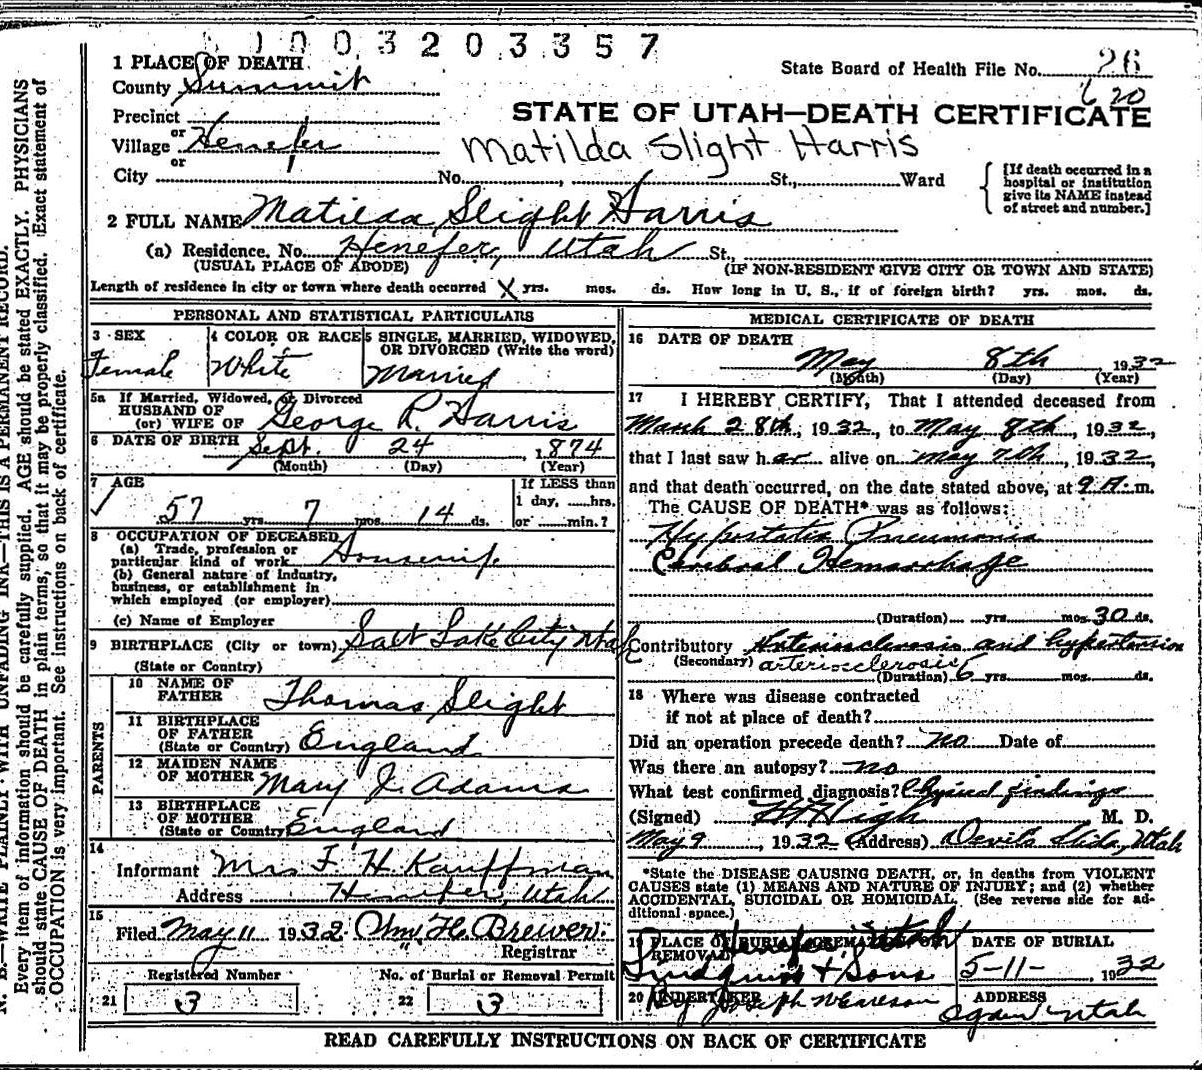 1003203357
1 PLACE OF DEATH
State Board of Health File No. 26
County Summit
620
Precinct
STATE OF UTAH—DEATH CERTIFICATE
or
Village Henefer
Matilda Slight Harris
or
City No. , St., Ward
[If death occurred in a hospital or institution give its NAME instead of street and number.]
2 FULL NAME Matilda Slight Harris
(a) Residence, No. Henefer, Utah St.,
(USUAL PLACE OF ABODE) (IF NON-RESIDENT GIVE CITY OR TOWN AND STATE)
Length of residence in city or town where death occurred X yrs. mos. ds. How long in U. S., if of foreign birth? yrs. mos. ds.
PERSONAL AND STATISTICAL PARTICULARS
3 SEX
Female
4 COLOR OR RACE
White
5 SINGLE, MARRIED, WIDOWED,
OR DIVORCED (Write the word)
Married
5a If Married, Widowed, or Divorced
HUSBAND OF
(or) WIFE OF George R. Harris
6 DATE OF BIRTH Sept. 24, 1874
(Month) (Day) (Year)
7 AGE
57 yrs. 7 mos. 14 ds.
If LESS than
1 day, hrs.
or min.?
8 OCCUPATION OF DECEASED
(a) Trade, profession or
particular kind of work Housewife
(b) General nature of Industry,
business, or establishment in
which employed (or employer)
(c) Name of Employer
9 BIRTHPLACE (City or town) Salt Lake City Utah
(State or Country)
PARENTS
10 NAME OF
FATHER Thomas Slight
11 BIRTHPLACE
OF FATHER
(State or Country) England
12 MAIDEN NAME
OF MOTHER Mary J. Adams
13 BIRTHPLACE
OF MOTHER
(State or Country) England
14
Informant Mrs F. H. Kauffman
Address Henefer, Utah
15
Filed May 11 1932 Wm. H. Brewer.
Registrar
Registered Number
21 3
No. of Burial or Removal Permit
22 3
MEDICAL CERTIFICATE OF DEATH
16 DATE OF DEATH
May 8th 1932
(Month) (Day) (Year)
17 I HEREBY CERTIFY, That I attended deceased from
March 28th, 1932, to May 8th, 1932,
that I last saw her alive on May 7th, 1932,
and that death occurred, on the date stated above, at 9 A.m.
The CAUSE OF DEATH* was as follows:
Hypostatic Pneumonia
Cerebral Hemorrhage
(Duration) yrs. mos. 30 ds.
Contributory Arteriosclerosis and hypertension
(Secondary) arteriosclerosis
(Duration) 6 yrs. mos. ds.
18 Where was disease contracted
if not at place of death?
Did an operation precede death? no Date of
Was there an autopsy? no
What test confirmed diagnosis? Physical findings
(Signed) High M. D.
May 9, 1932 (Address) Devils Slide, Utah
*State the DISEASE CAUSING DEATH, or, in deaths from VIOLENT
CAUSES state (1) MEANS AND NATURE OF INJURY; and (2) whether
ACCIDENTAL, SUICIDAL OR HOMICIDAL. (See reverse side for ad-
ditional space.)
19 PLACE OF BURIAL, CREMATION OR
REMOVAL Henefer Utah
DATE OF BURIAL
5-11- 1932
Lindquist & Sons
20 UNDERTAKER
By Joseph W Carlson
ADDRESS
Ogden Utah
READ CAREFULLY INSTRUCTIONS ON BACK OF CERTIFICATE
N. B.—WRITE PLAINLY WITH UNFADING INK—THIS IS A PERMANENT RECORD.
Every item of information should be carefully supplied. AGE should be stated EXACTLY. PHYSICIANS
should state CAUSE OF DEATH in plain terms, so that it may be properly classified. Exact statement of
OCCUPATION is very important. See instructions on back of certificate.